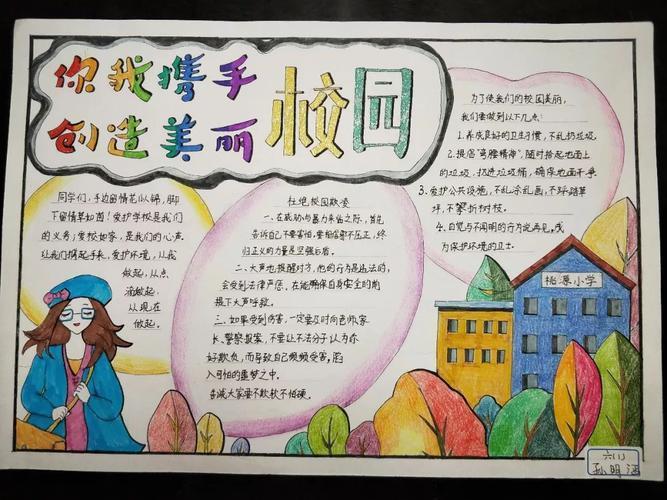 你我携手
创造美丽
校园
同学们，手边留情花似锦，脚
下留情草如茵！爱护学校是我们
的义务；爱校如家，是我们的心声。
让我们携起手来，爱护环境，从我
做起，从点
滴做起，
从现在
做起。
杜绝校园欺凌
一、在威胁与暴力来临之际，首先
告诉自己不要害怕，要相信邪不压正，终
归正义的力量是坚强后盾。
二、大声地提醒对方，他的行为是违法的，
会受到法律严惩，在能确保自身安全的前
提下大声呼救。
三、如果受到伤害，一定要及时向老师、家
长、警察报案，不要让不法分子认为你
好欺负，而导致自己频频受害，陷
入可怕的噩梦之中。
告诫大家要不欺软不怕硬。
为了使我们的校园美丽，
我们要做到以下几点：
1.养成良好的卫生习惯，不乱扔垃圾。
2.提倡“弯腰精神”，随时拾起地面上
的垃圾，扔进垃圾桶，确保地面干净
3.爱护公共设施，不乱涂乱画，不踩踏草
坪，不攀折树枝。
4.自觉与不文明的行为说再见，成
为保护环境的卫士。
桃源小学
六(1)
孙明